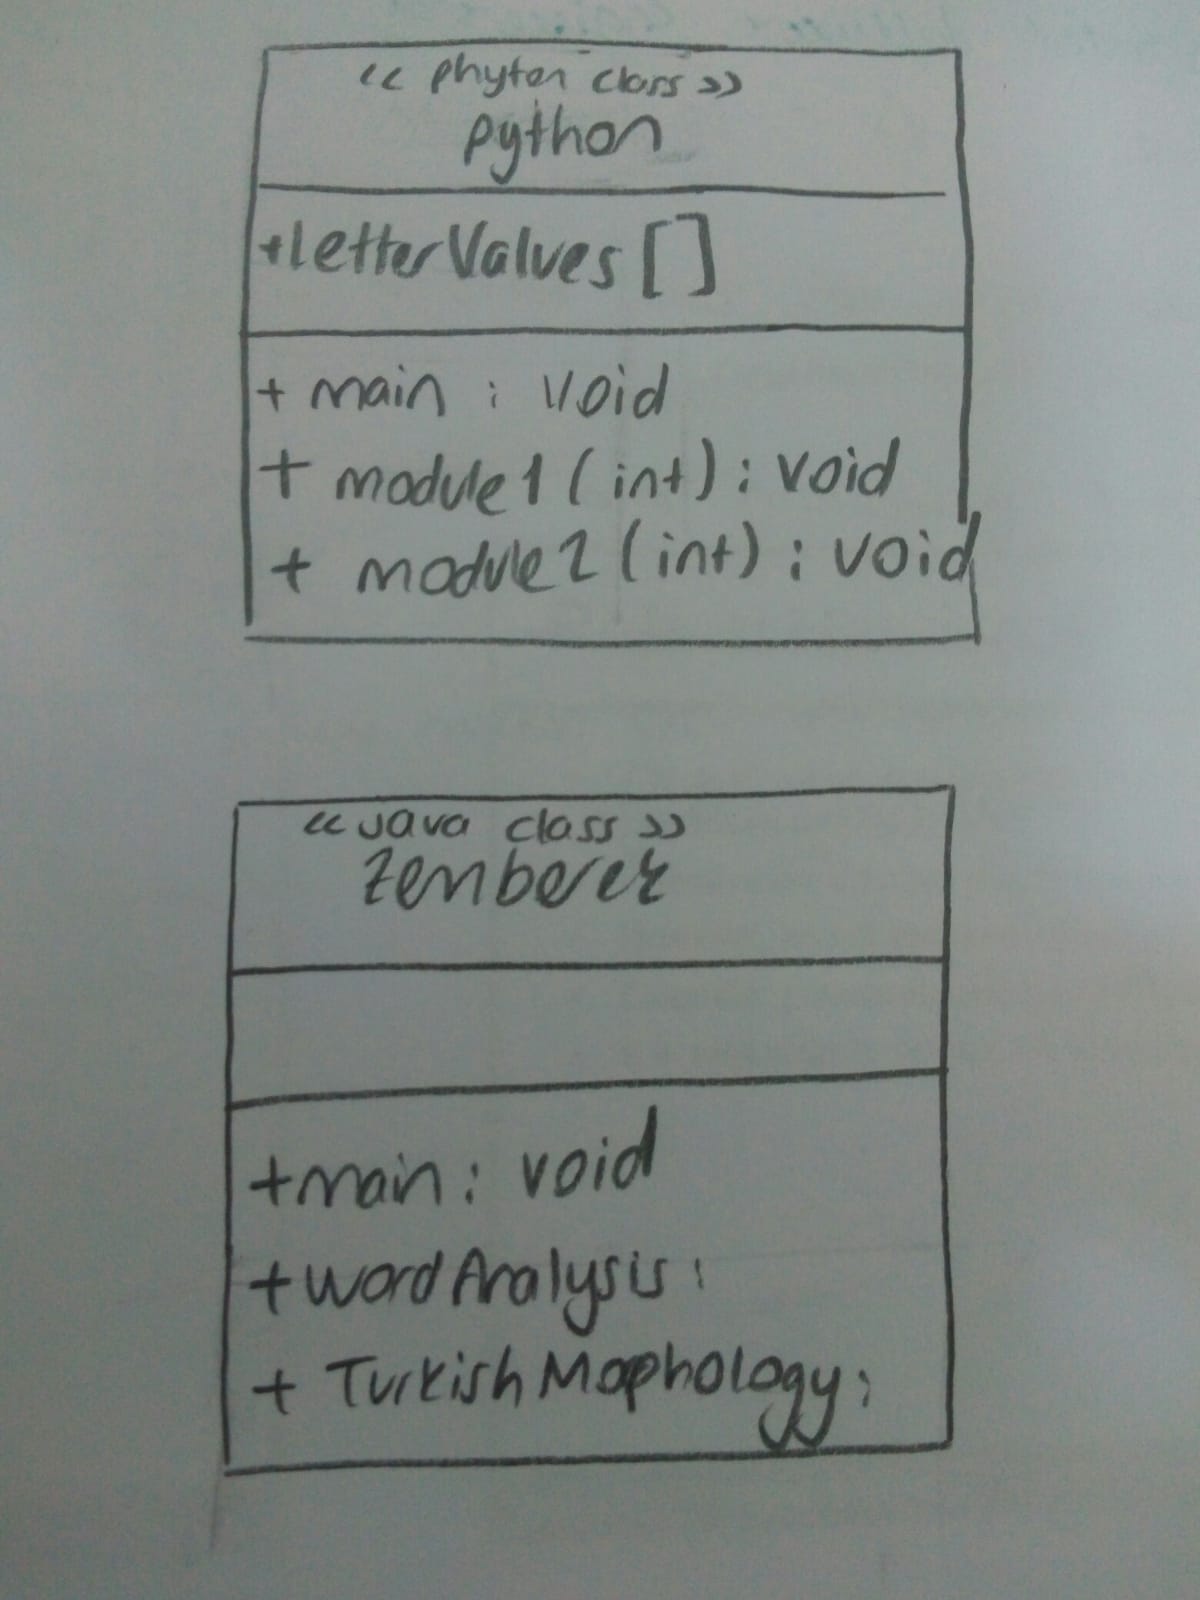 << phyton class >>
python
+letterValues []
+ main : void
+ module1 (int) : void
+ module2 (int) : void
<< Java class >>
Zemberek
+main : void
+wordAnalysis :
+ TurkishMophology :